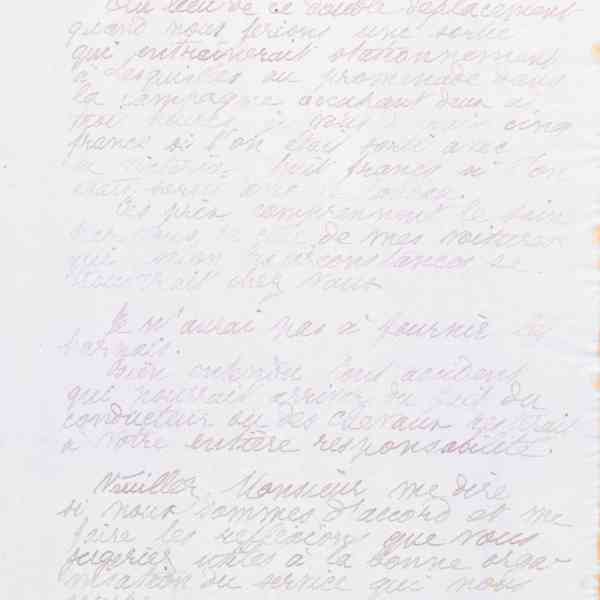 Au lieu de ce double déplacement
quand nous ferions une sortie
qui entraînerait stationnement
à Lesquielles ou promenade dans
la campagne occupant deux ou
heures je vous cinq
francs si l'on était sorti avec
huit francs si l'on
était sorti avec
Ces prix comprennent le soin
de mes voitures
qui selon les circonstances se
chez vous
Je n'aurai pas à fournir les
harnais.
Bien entendu tout accident
qui pourrait arriver du fait du
conducteur ou des chevaux resterait
à votre entière responsabilité.
Veuillez Monsieur me dire
si nous sommes d'accord et me
faire les réflexions que vous
jugeriez utiles à la bonne orga-
nisation du service qui nous